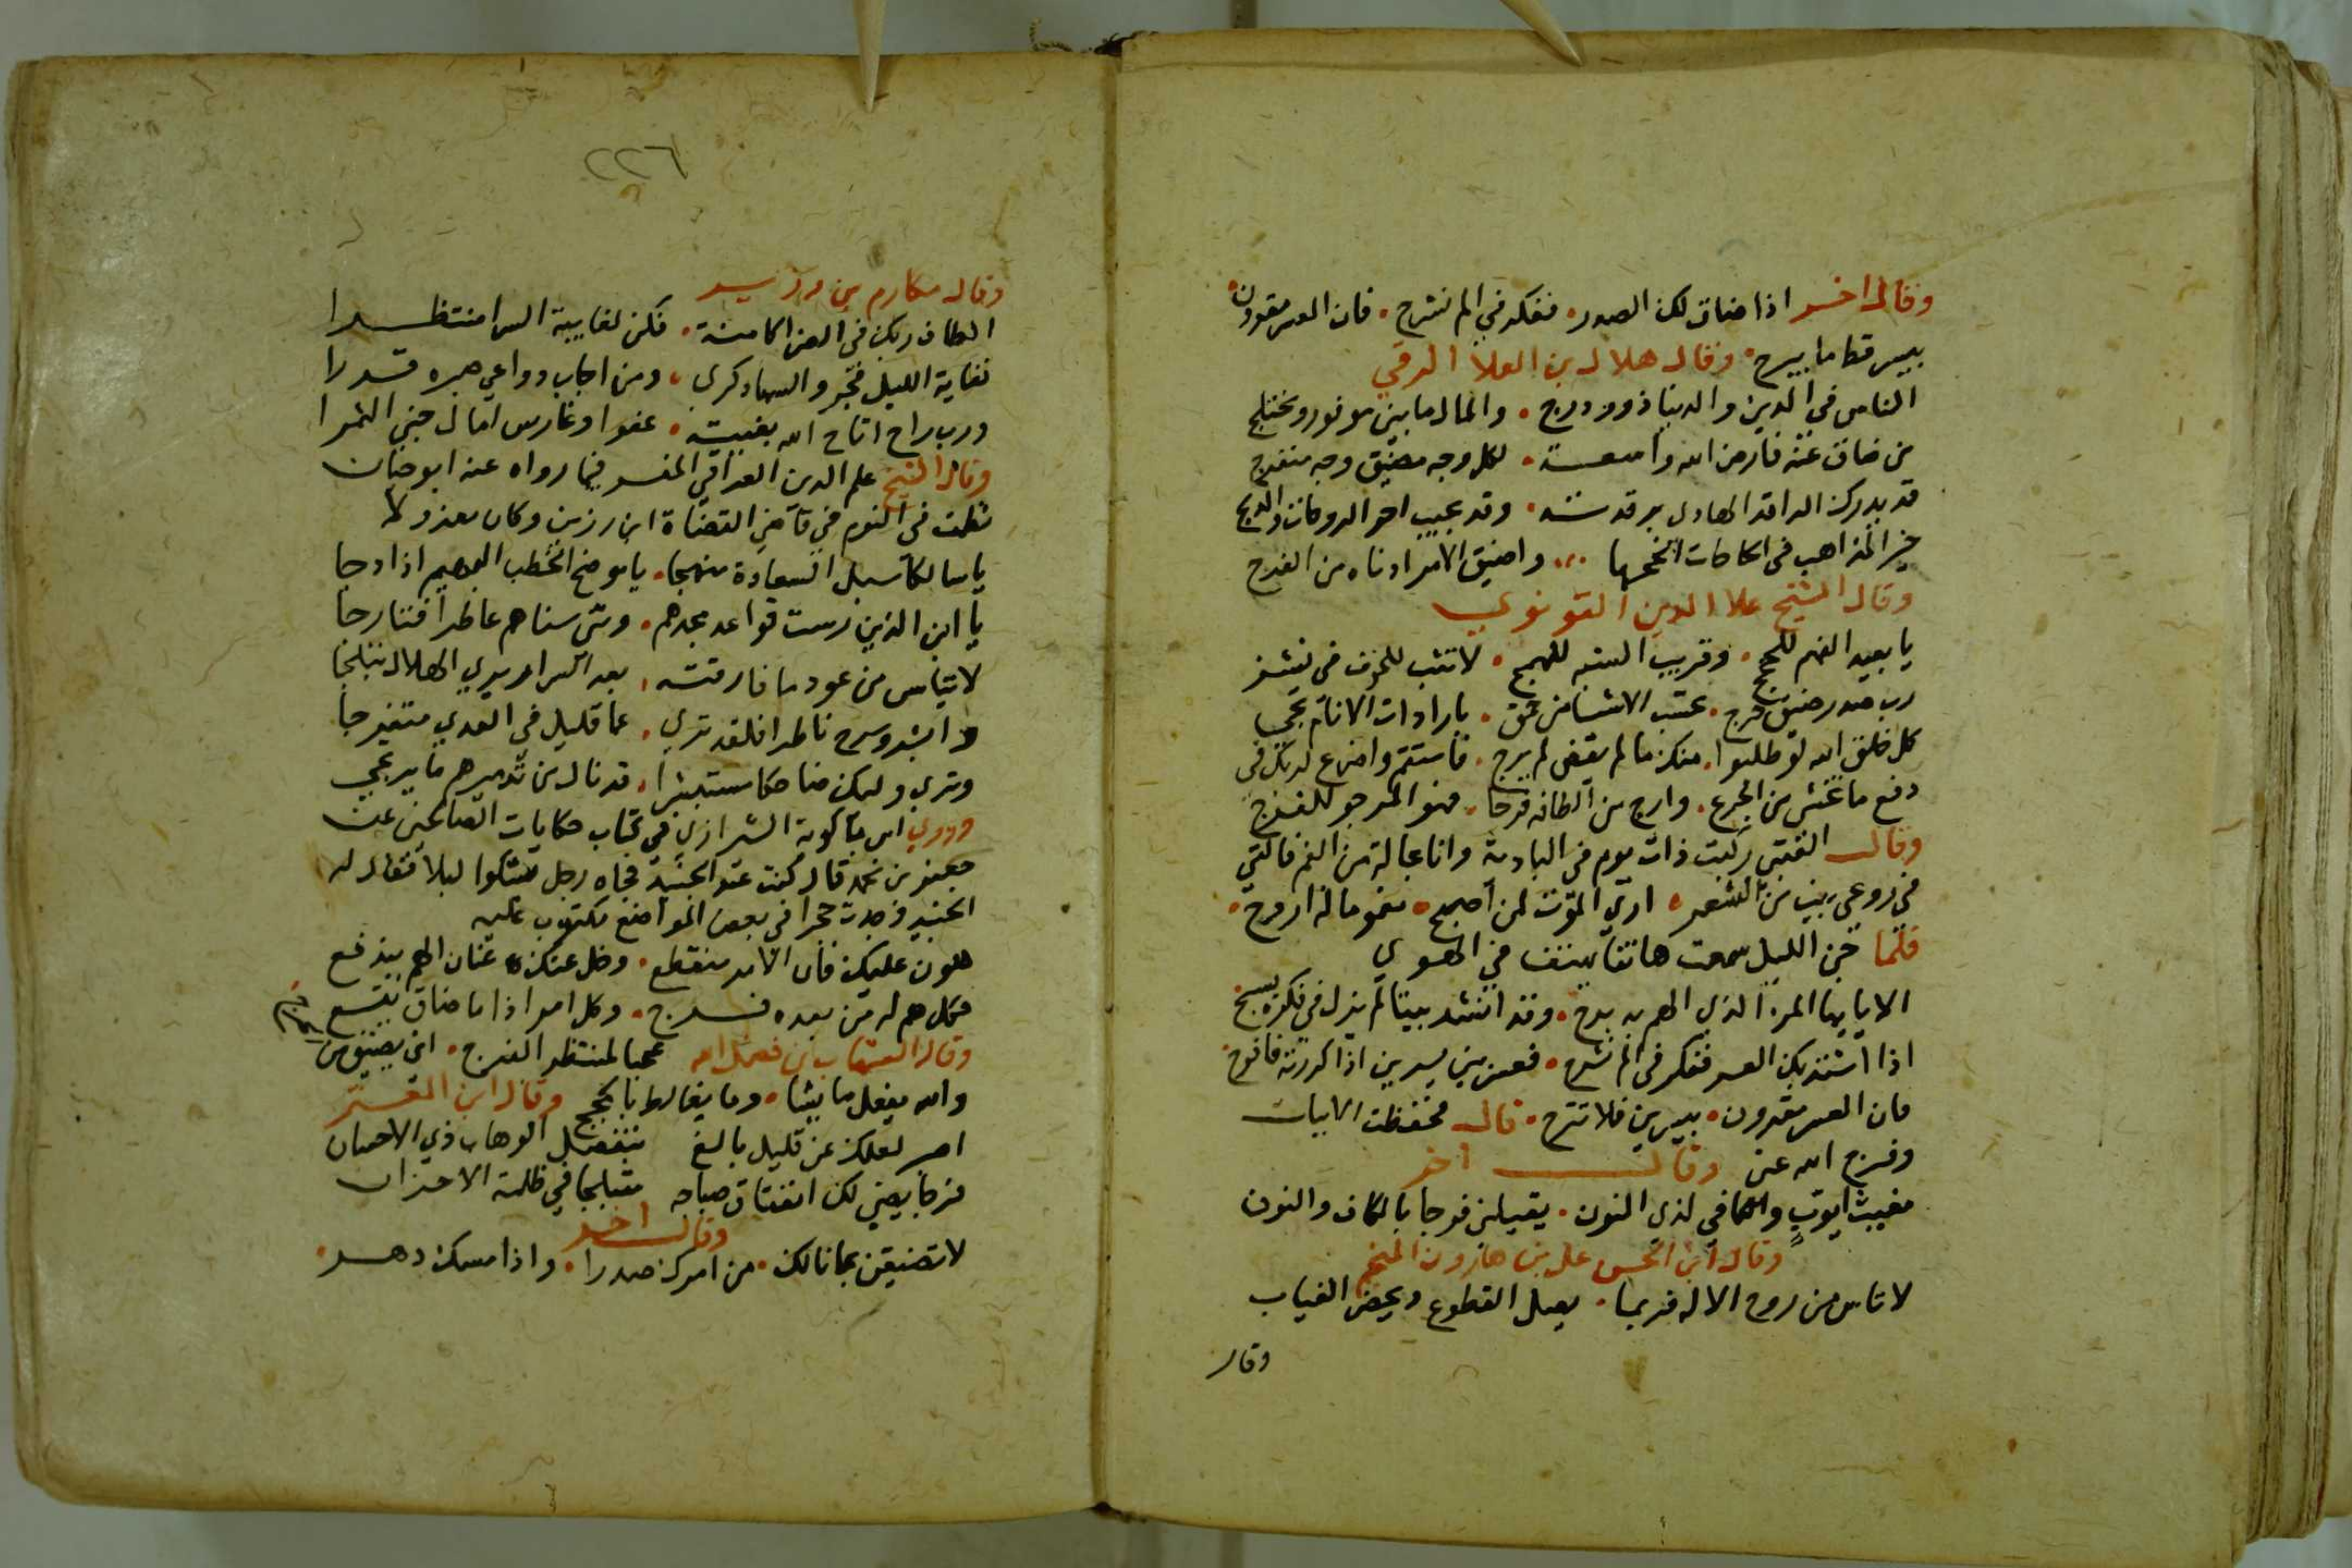 وقال اخر اذا ضاق لك الصدر • ففكر في الم نشرح • فان العسر مقرون
بيسر قط ما يبرح • وقال هلال بن العلا الرقي
الناس في الدين والدنيا ذوو درج • والمال ما بين موفور ومختلج
من ضاق عنه فارض الله واسعة • لكل وجه مضيق وجه منفرج
قد يدرك الراقد الهادي برقدته • وقد يخيب اخو الروحات والدلج
خير المذاهب في الحاجات انجحها • واضيق الامر ادناه من الفرج
وقال الشيخ علا الدين القونوي
يا بعيد الفهم للحجج • وقريب السته للهمج •
رب صدر ضيق حرج • بارادات الانام يجي
كل خلق الله لو طلبوا • منك ما لم يقض لم يرج • فاستقم واضرع لربك في
دفع ما تخش من الحرج • وارج من الطافه فرجا • فهو المرجو للفرج
وقال القيني ركبت ذات يوم في البادية وانا بحالة من الغم فالقي
في روعي بيت من الشعر • ارى الموت لمن اصبح • مغموما له اروح •
فلما جن الليل سمعت هاتفا يهتف في الهوي
الا يا ايها المر الذي الهم به برح • وقد انشد بيتا لم يزل في فكره يسبح
اذا اشتد بك العسر ففكر في الم نشرح • فعسر بين يسرين اذا كررته فافرح
فان العسر مقرون • بيسرين فلا تترح • قال فحفظت الابيات
وفرج الله عني وقال اخر
مغيث ايوب والكافي لذي النون • يقيلني فرجا بالكاف والنون
وقال ابن الحسن علي بن هارون المنجم
لا تاس من روح الاله فربما • يصل القطوع ويحضر الغياب
وقال
٢٢٦
وقال مكارم بن
الطاف ربك في العسر الكامنة • فكن لغايبة السرا منتظرا
فغاية الليل فجر والسهاد كرى • ومن اجاب دواعي صبره قدرا
ورب راج اتاح الله بغيته • عفوا وغارس امال جنى الثمرا
وقال الشيخ علم الدين العراقي المفسر فيما رواه عنه ابو حيان
نظمت في النوم في قاضي القضاة ابن رزين وكان معزولا
يا سالكا سبل السعادة منهجا • يا موضح الخطب البهيم اذا دجا
يا ابن الذين رست قواعد مجدهم • وسرى سناهم عاطرا فتارجا
لا تيأس من عود ما فارقته • بعد السرار يري الهلال تبلجا
وابشر وسرح ناظرا فلقد ترى • عما قليل في العدى متفرجا
وترى وليك ضاحكا مستبشرا • قد نال من تدميرهم ما يرتجي
وروي ابن باكويه الشيرازي في كتاب حكايات الصالحين عن
جعفر بن محمد قال كنت عند الجنيد فجاه رجل يشكوا ليلا فقال له
الجنيد وجدت حجرا في بعض المواضع مكتوب عليه
هون عليك فان الامر منقطع • وخل عنك عنان الهم يندفع
فكل هم له من بعده فرج • وكل امر اذا ما ضاق يتسع
وقال الشهاب بن فضل الله عجبا لمنتظر الفرج • اني يضيق من
والله يفعل ما يشا • وما يغالط بالحجج وقال ابن
اصبر لعلك عن قليل بالغ بتفضل الوهاب ذي الاحسان
فرجا يضي لك انفتاق صباحه متبلجا في ظلمة الاحزان
وقال اخر
لا تضيقن بما نالك • من امرك صدرا • واذا مسك دهر •